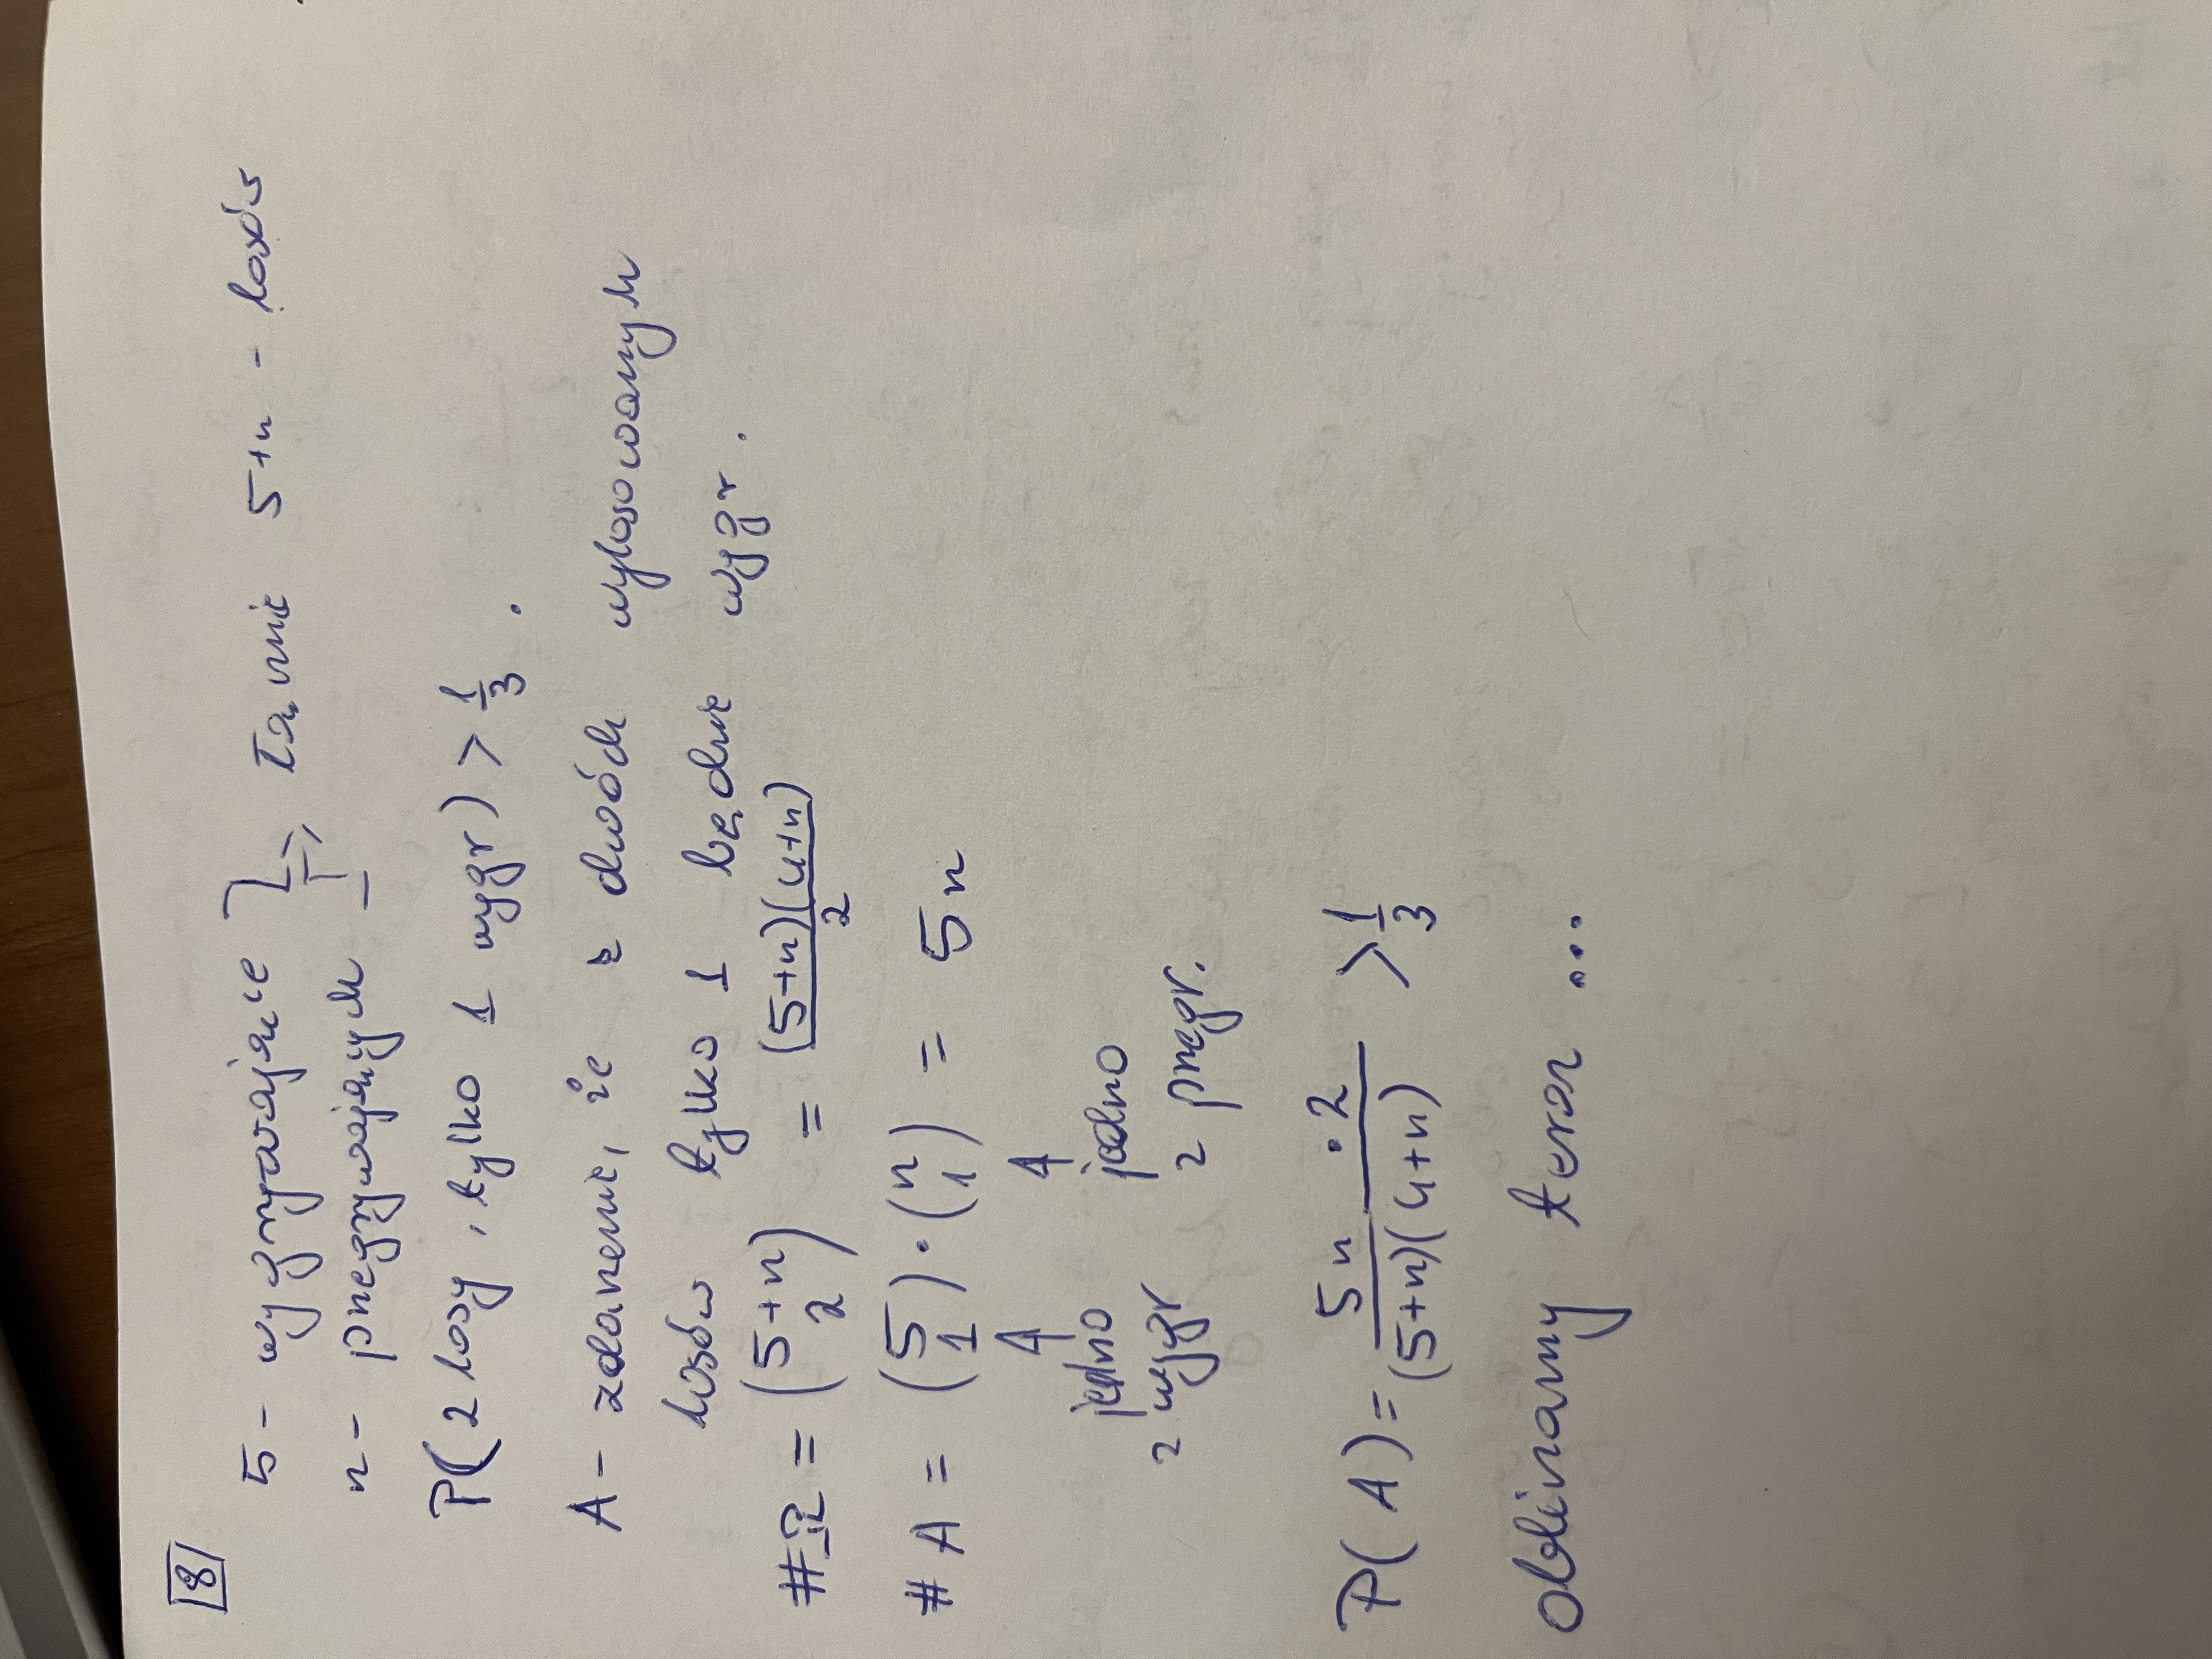 8
5 - wygrywające } => Łącznie 5+n - losów
n - przegrywających
P(2 losy, tylko 1 wygr) > 1/3.
A - zdarzenie, że z dwóch wylosowanych
losów tylko 1 będzie wygr.
#Ω = (5+n 2) = (5+n)(4+n)/2
#A = (5 1) · (n 1) = 5n
↑ ↑
jedno z wygr jedno z przegr.
P(A) = 5n · 2/(5+n)(4+n) > 1/3
Obliczamy teraz ...